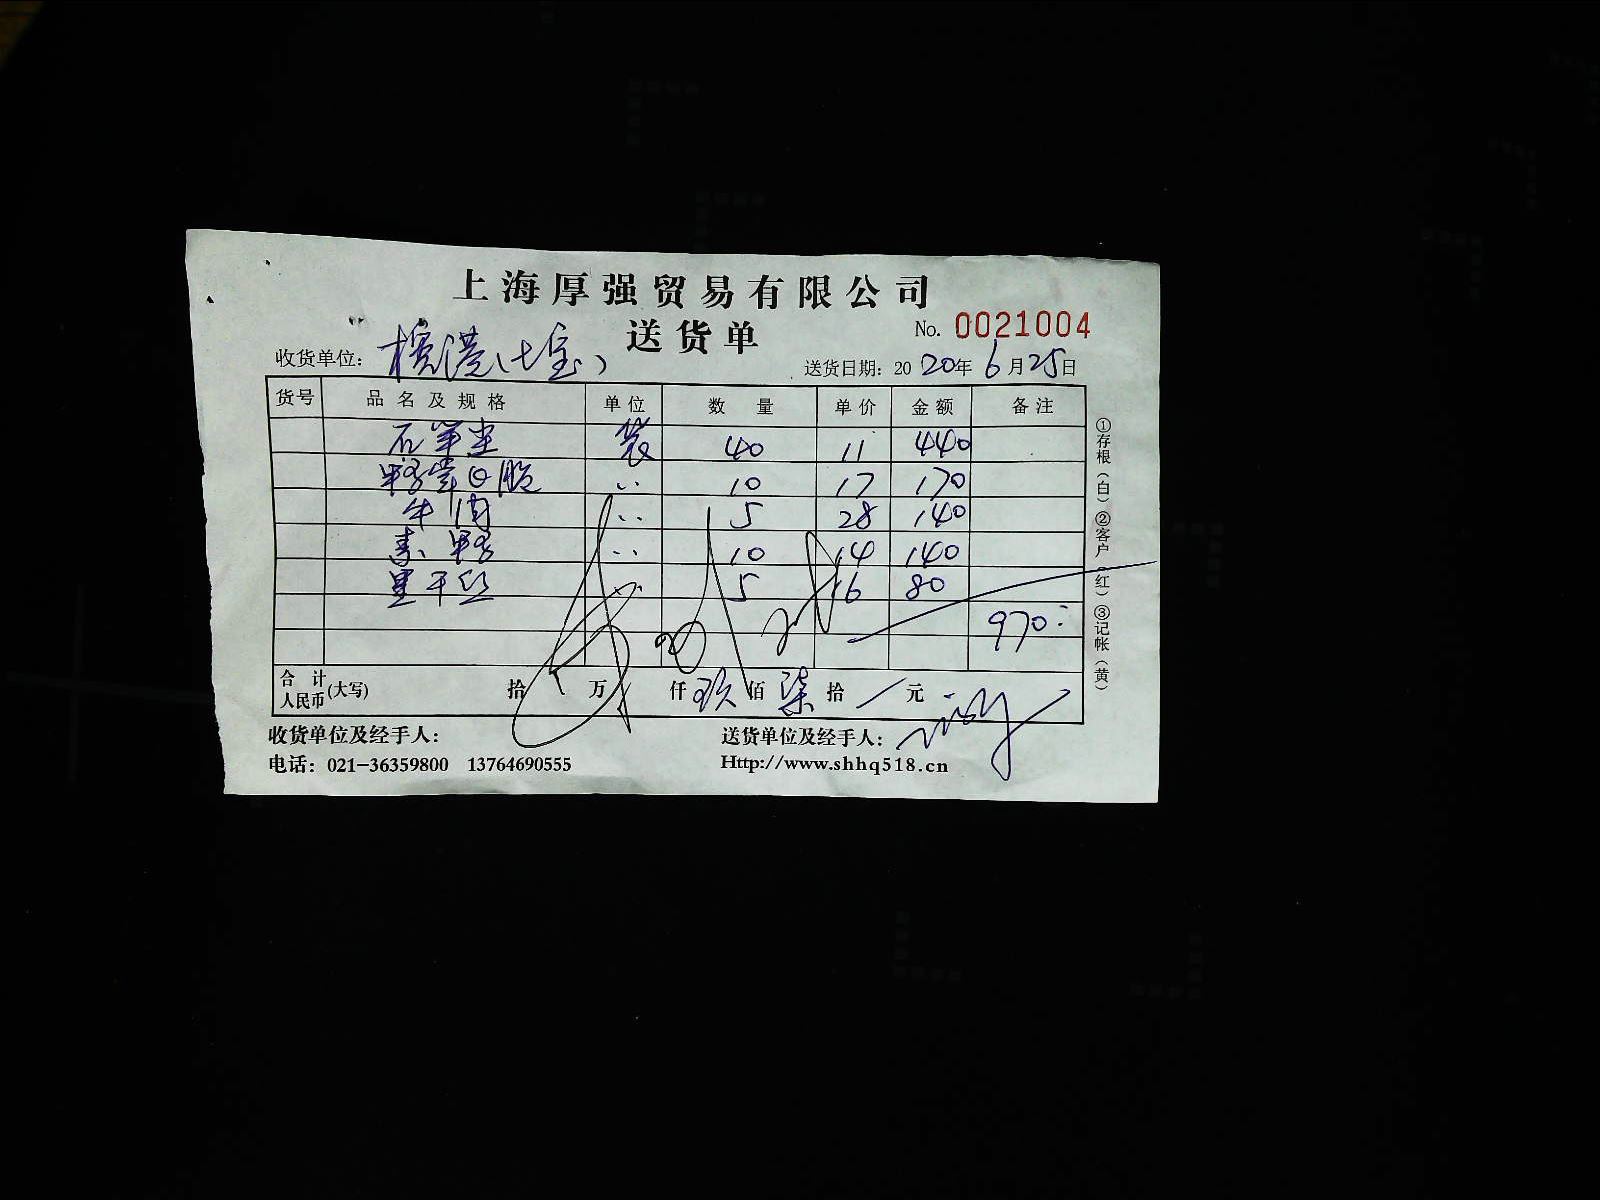 上海厚强贸易有限公司
送货单 No. 0021004
收货单位: 槟港(七宝) 送货日期: 2020年6月25日
货号 品名及规格 单位 数量 单价 金额 备注
袋 40 11 440
〃 10 17 170
牛肉 〃 5 28 140
素鸭 〃 10 14 140
黑干丝 〃 5 16 80
970
合计人民币(大写) 拾 万 仟 玖佰 柒拾 元
收货单位及经手人: 送货单位及经手人:
电话: 021-36359800 13764690555 Http://www.shhq518.cn
①存根(白)②客户(红)③记帐(黄)